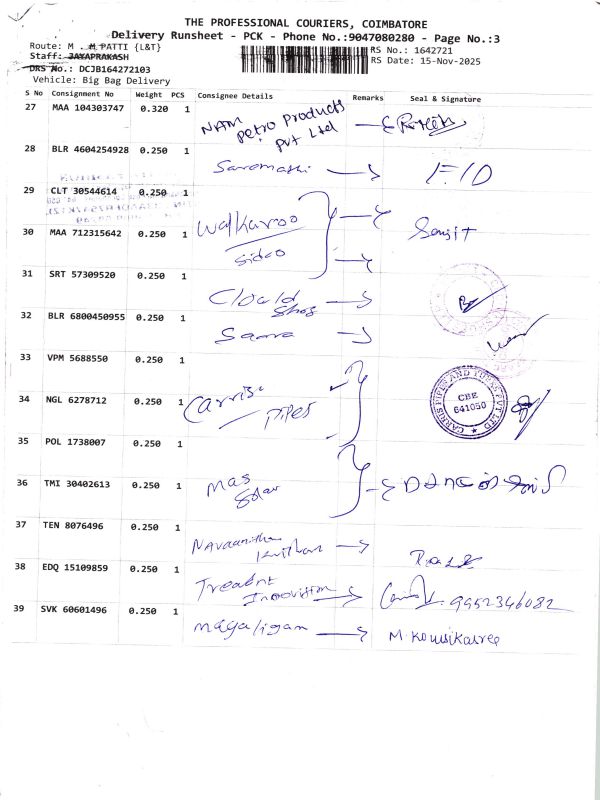 THE PROFESSIONAL COURIERS, COIMBATORE
Delivery Runsheet - PCK - Phone No.:9047080280 - Page No.:3
Route: M . M PATTI {L&T}
RS No.: 1642721
Staff: JAYAPRAKASH
RS Date: 15-Nov-2025
DRS No.: DCJB164272103
Vehicle: Big Bag Delivery
S No Consignment No Weight PCS Consignee Details Remarks Seal & Signature
27 MAA 104303747 0.320 1 NAM Petro Products Pvt Ltd
28 BLR 4604254928 0.250 1
29 CLT 30544614 0.250 1 Walkaroo
30 MAA 712315642 0.250 1 Sidco
31 SRT 57309520 0.250 1 Clould Shos
32 BLR 6800450955 0.250 1
33 VPM 5688550 0.250 1
34 NGL 6278712 0.250 1 Carris Pipes
CARRIS PIPES AND TUBES PVT LTD
CBE
641050
35 POL 1738007 0.250 1
36 TMI 30402613 0.250 1 Mas Solar
37 TEN 8076496 0.250 1
38 EDQ 15109859 0.250 1 9952346082
39 SVK 60601496 0.250 1 Magaligam M. Kousikasree